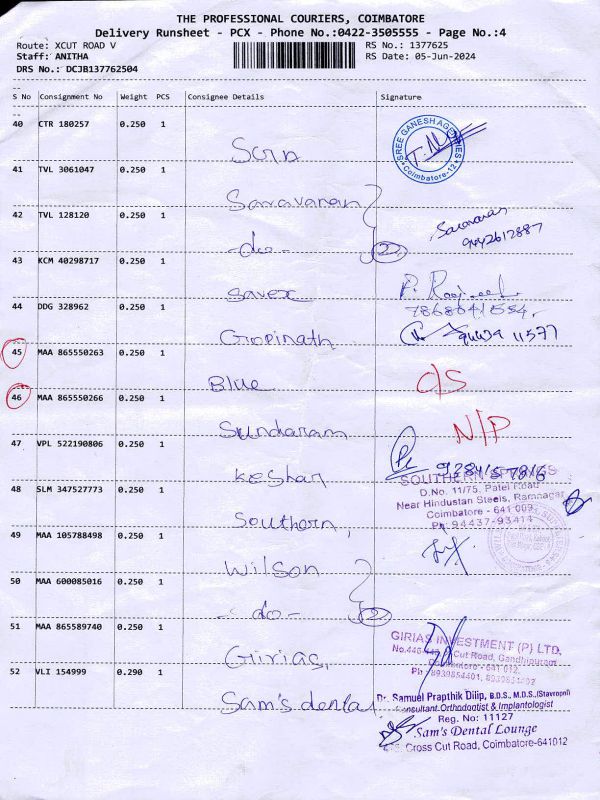 THE PROFESSIONAL COURIERS, COIMBATORE
Delivery Runsheet - PCX - Phone No.:0422-3505555 - Page No.:4
Route: XCUT ROAD V
RS No.: 1377625
Staff: ANITHA
RS Date: 05-Jun-2024
DRS No.: DCJB137762504
S No Consignment No Weight PCS Consignee Details Signature
40 CTR 180257 0.250 1
SREE GANESH AGENCIES
Coimbatore-12
41 TVL 3061047 0.250 1
Saravanan
42 TVL 128120 0.250 1
Saravanan
9442612887
-do- 2
43 KCM 40298717 0.250 1
Savex
44 DDG 328962 0.250 1
7868641554,
Gopinath
11577
45 MAA 865550263 0.250 1
Blue
C/S
46 MAA 865550266 0.250 1
Sundaram
N/P
47 VPL 522190806 0.250 1
Keshar
SOUTHERN
D.No. 11/75, Patel Road
Near Hindustan Steels, Ramnagar
48 SLM 347527773 0.250 1
Coimbatore - 641 009
Southern,
Ph 94437-93414
49 MAA 105788498 0.250 1
Wilson
50 MAA 600085016 0.250 1
-do- 2
51 MAA 865589740 0.250 1
GIRIAS INVESTMENT (P) LTD,
Cut Road, Gandhipuram
Girias,
Coimbatore - 641 012,
52 VLI 154999 0.290 1
Sam's dental
Dr. Samuel Prapthik Dilip, B.D.S., M.D.S.,(Stavropol)
Consultant Orthodootist & Implantologist
Reg. No: 11127
Sam's Dental Lounge
Cross Cut Road, Coimbatore-641012